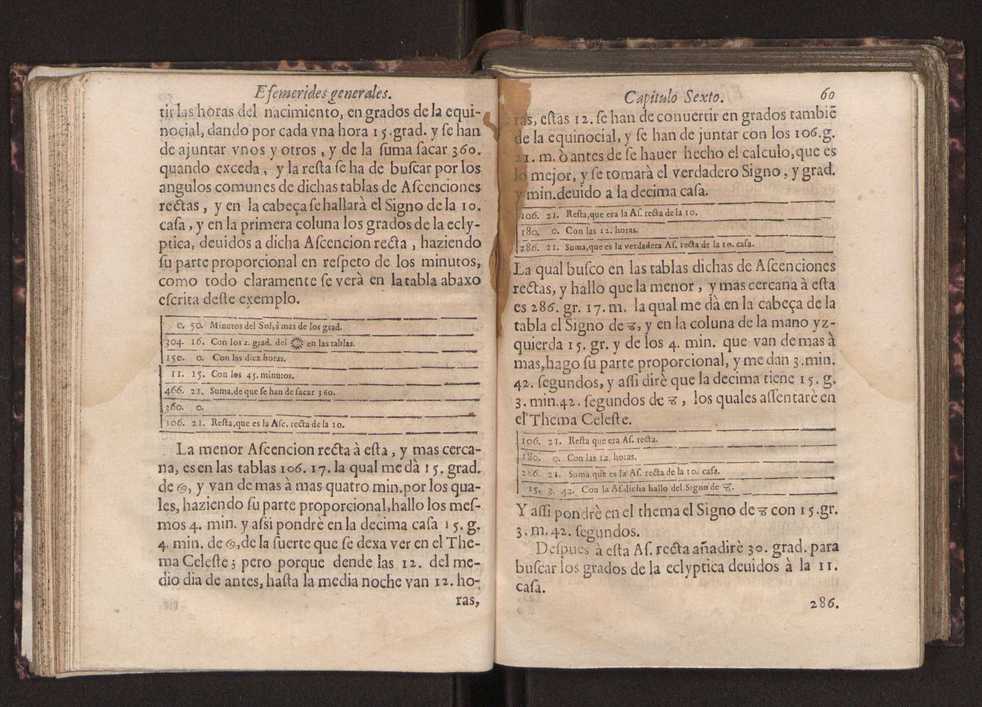 Efemerides generales.
tir las horas del nacimiento, en grados de la equi-
nocial, dando por cada vna hora 15. grad. y ſe han
de ajuntar vnos y otros, y de la ſuma ſacar 360.
quando exceda, y la reſta ſe ha de buſcar por los
angulos comunes de dichas tablas de Aſcenciones
rectas, y en la cabeça ſe hallarà el Signo de la 10.
caſa, y en la primera coluna los grados de la ecly-
ptica, deuidos a dicha Aſcencion recta, haziendo
ſu parte proporcional en reſpeto de los minutos,
como todo claramente ſe verà en la tabla abaxo
eſcrita deſte exemplo.
0. 50. Minutos del Sol, à mas de los grad.
304. 16. Con los 2. grad. del ☼ en las tablas.
150. 0. Con las diez horas.
11. 15. Con los 45. minutos.
466. 21. Suma, de que ſe han de ſacar 360.
360. 0.
106. 21. Reſta, que es la Aſc. recta de la 10.
La menor Aſcencion recta à eſta, y mas cerca-
na, es en las tablas 106. 17. la qual me dà 15. grad.
de ♋, y van de mas à mas quatro min. por los qua-
les, haziendo ſu parte proporcional, hallo los meſ-
mos 4. min. y aſsi pondrè en la decima caſa 15. g.
4. min. de ♋, de la ſuerte que ſe dexa ver en el The-
ma Celeſte; pero porque dende las 12. del me-
dio dia de antes, haſta la media noche van 12. ho-
ras,
Capitulo Sexto. 60
ras, eſtas 12. ſe han de conuertir en grados tambiẽ
de la equinocial, y ſe han de juntar con los 106. g.
21. m. ò antes de ſe hauer hecho el calculo, que es
lo mejor, y ſe tomarà el verdadero Signo, y grad.
y min. deuido a la decima caſa.
106. 21. Reſta, que era la Aſ. recta de la 10.
180. 0. Con las 12. horas.
286. 21. Suma, que es la verdadera Aſ. recta de la 10. caſa.
La qual buſco en las tablas dichas de Aſcenciones
rectas, y hallo que la menor, y mas cercana à eſta
es 286. gr. 17. m. la qual me dà en la cabeça de la
tabla el Signo de ♑, y en la coluna de la mano yz-
quierda 15. gr. y de los 4. min. que van de mas à
mas, hago ſu parte proporcional, y me dan 3. min.
42. ſegundos, y aſſi dirè que la decima tiene 15. g.
3. min. 42. ſegundos de ♑, los quales aſſentarè en
el Thema Celeſte.
106. 21. Reſta que era Aſ. recta.
180. 0. Con las 12. horas.
286. 21. Suma que es la Aſ. recta de la 10. caſa.
15. 3. 42. Con la Aſ. dicha hallo del Signo de ♑.
Y aſſi pondrè en el thema el Signo de ♑ con 15. gr.
3. m. 42. ſegundos.
Deſpues à eſta Aſ. recta añadirè 30. grad. para
buſcar los grados de la eclyptica deuidos à la 11.
caſa.
286.